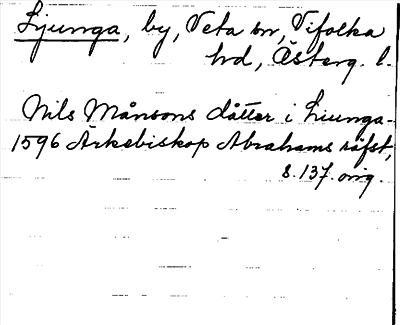 Ljunga, by, Veta sn, Vifolka
hd, Österg. l.
Nils Månsons dåtter i Liunga.
1596 Ärkebiskop Abrahams räfst,
s. 137. orig.